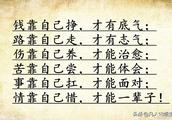 钱靠自己挣，才有底气；
路靠自己走，才有志气；
伤靠自己养，才能治愈；
苦靠自己尝，才能体会；
事靠自己扛，才能面对；
情靠自己惜，才能一辈子！